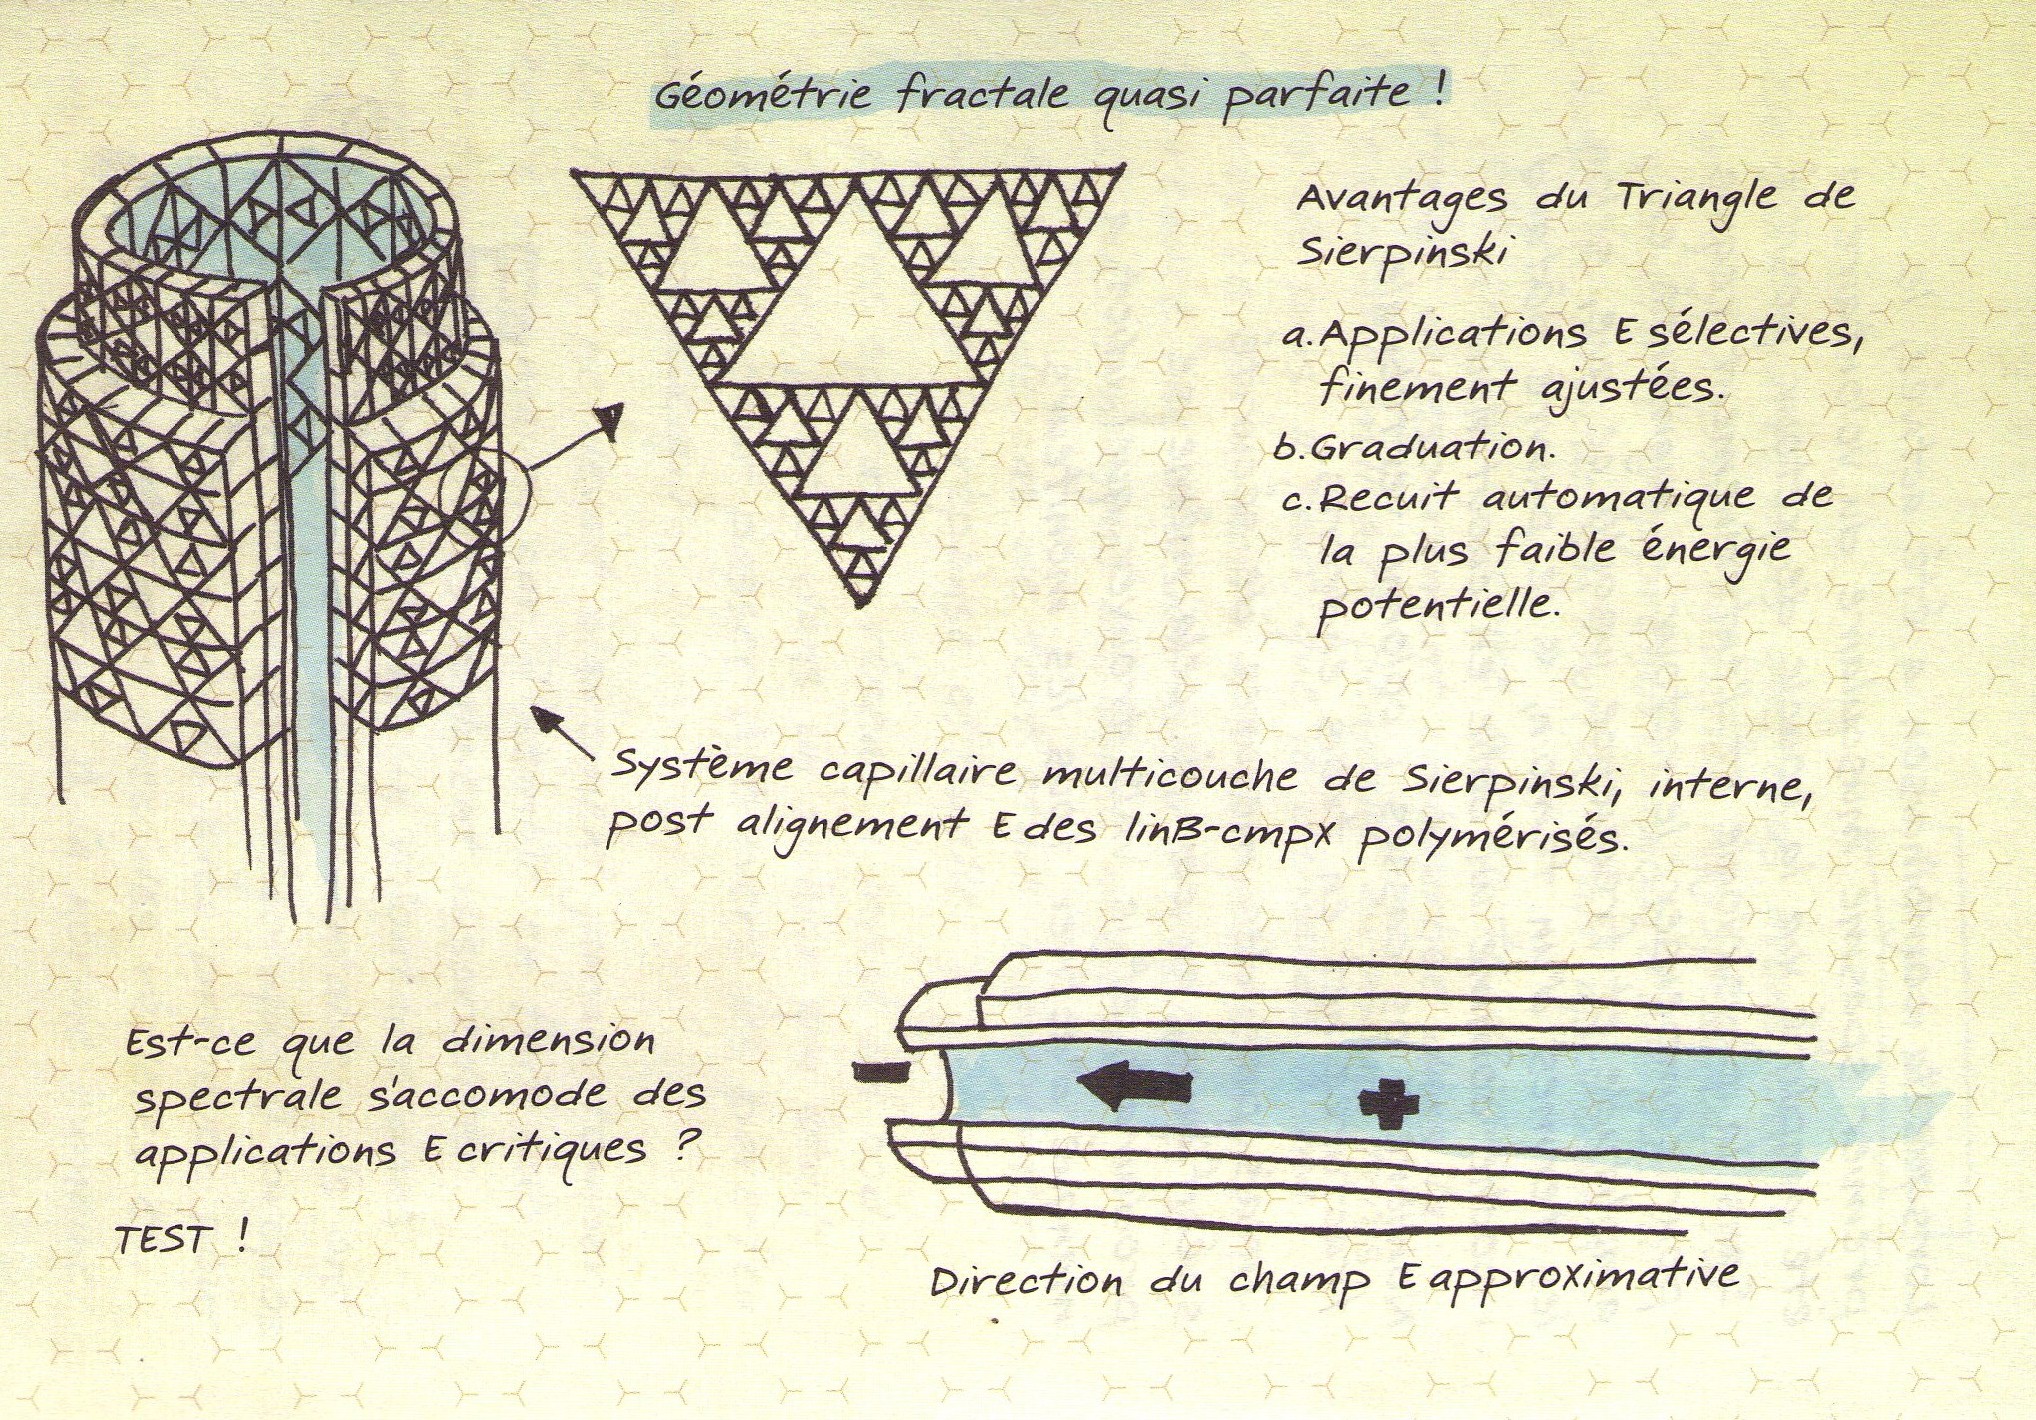 Géométrie fractale quasi parfaite !
Avantages du Triangle de
Sierpinski
a. Applications E sélectives,
finement ajustées.
b. Graduation.
c. Recuit automatique de
la plus faible énergie
potentielle.
Système capillaire multicouche de Sierpinski, interne,
post alignement E des linB-cmpx polymérisés.
Est-ce que la dimension
spectrale s'accomode des
applications E critiques ?
TEST !
- +
Direction du champ E approximative